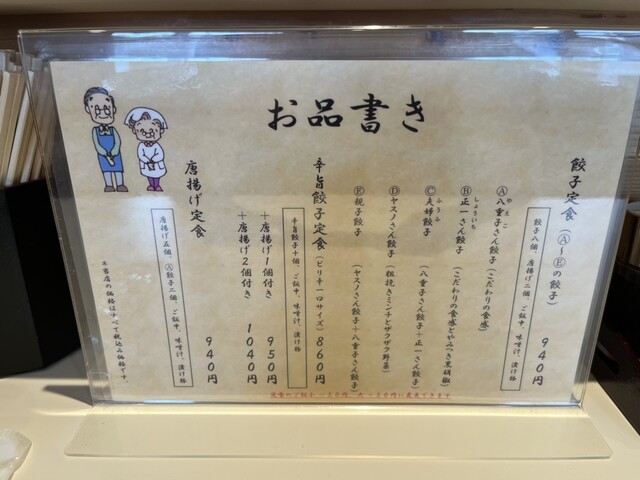 お品書き
餃子定食(Ⓐ～Ⓔの餃子) 940円
餃子八個、唐揚げ二個、ご飯中、味噌汁、漬け物
Ⓐ八重子さん餃子(こだわりの食感)
やえこ
Ⓑ正一さん餃子(こだわりの食感とやみつき黒胡椒)
しょういち
Ⓒ夫婦餃子(八重子さん餃子+正一さん餃子)
ふうふ
Ⓓヤスノさん餃子(粗挽きミンチとザクザク野菜)
Ⓔ親子餃子(ヤスノさん餃子+八重子さん餃子)
辛旨餃子定食(ピリ辛一口サイズ) 860円
辛旨餃子十個、ご飯中、味噌汁、漬け物
+唐揚げ1個付き 950円
+唐揚げ2個付き 1040円
唐揚げ定食 940円
唐揚げ五個、Ⓐ餃子二個、ご飯中、味噌汁、漬け物
*当店の価格はすべて税込み価格です。
定食のご飯小-50円、大+50円に変更できます